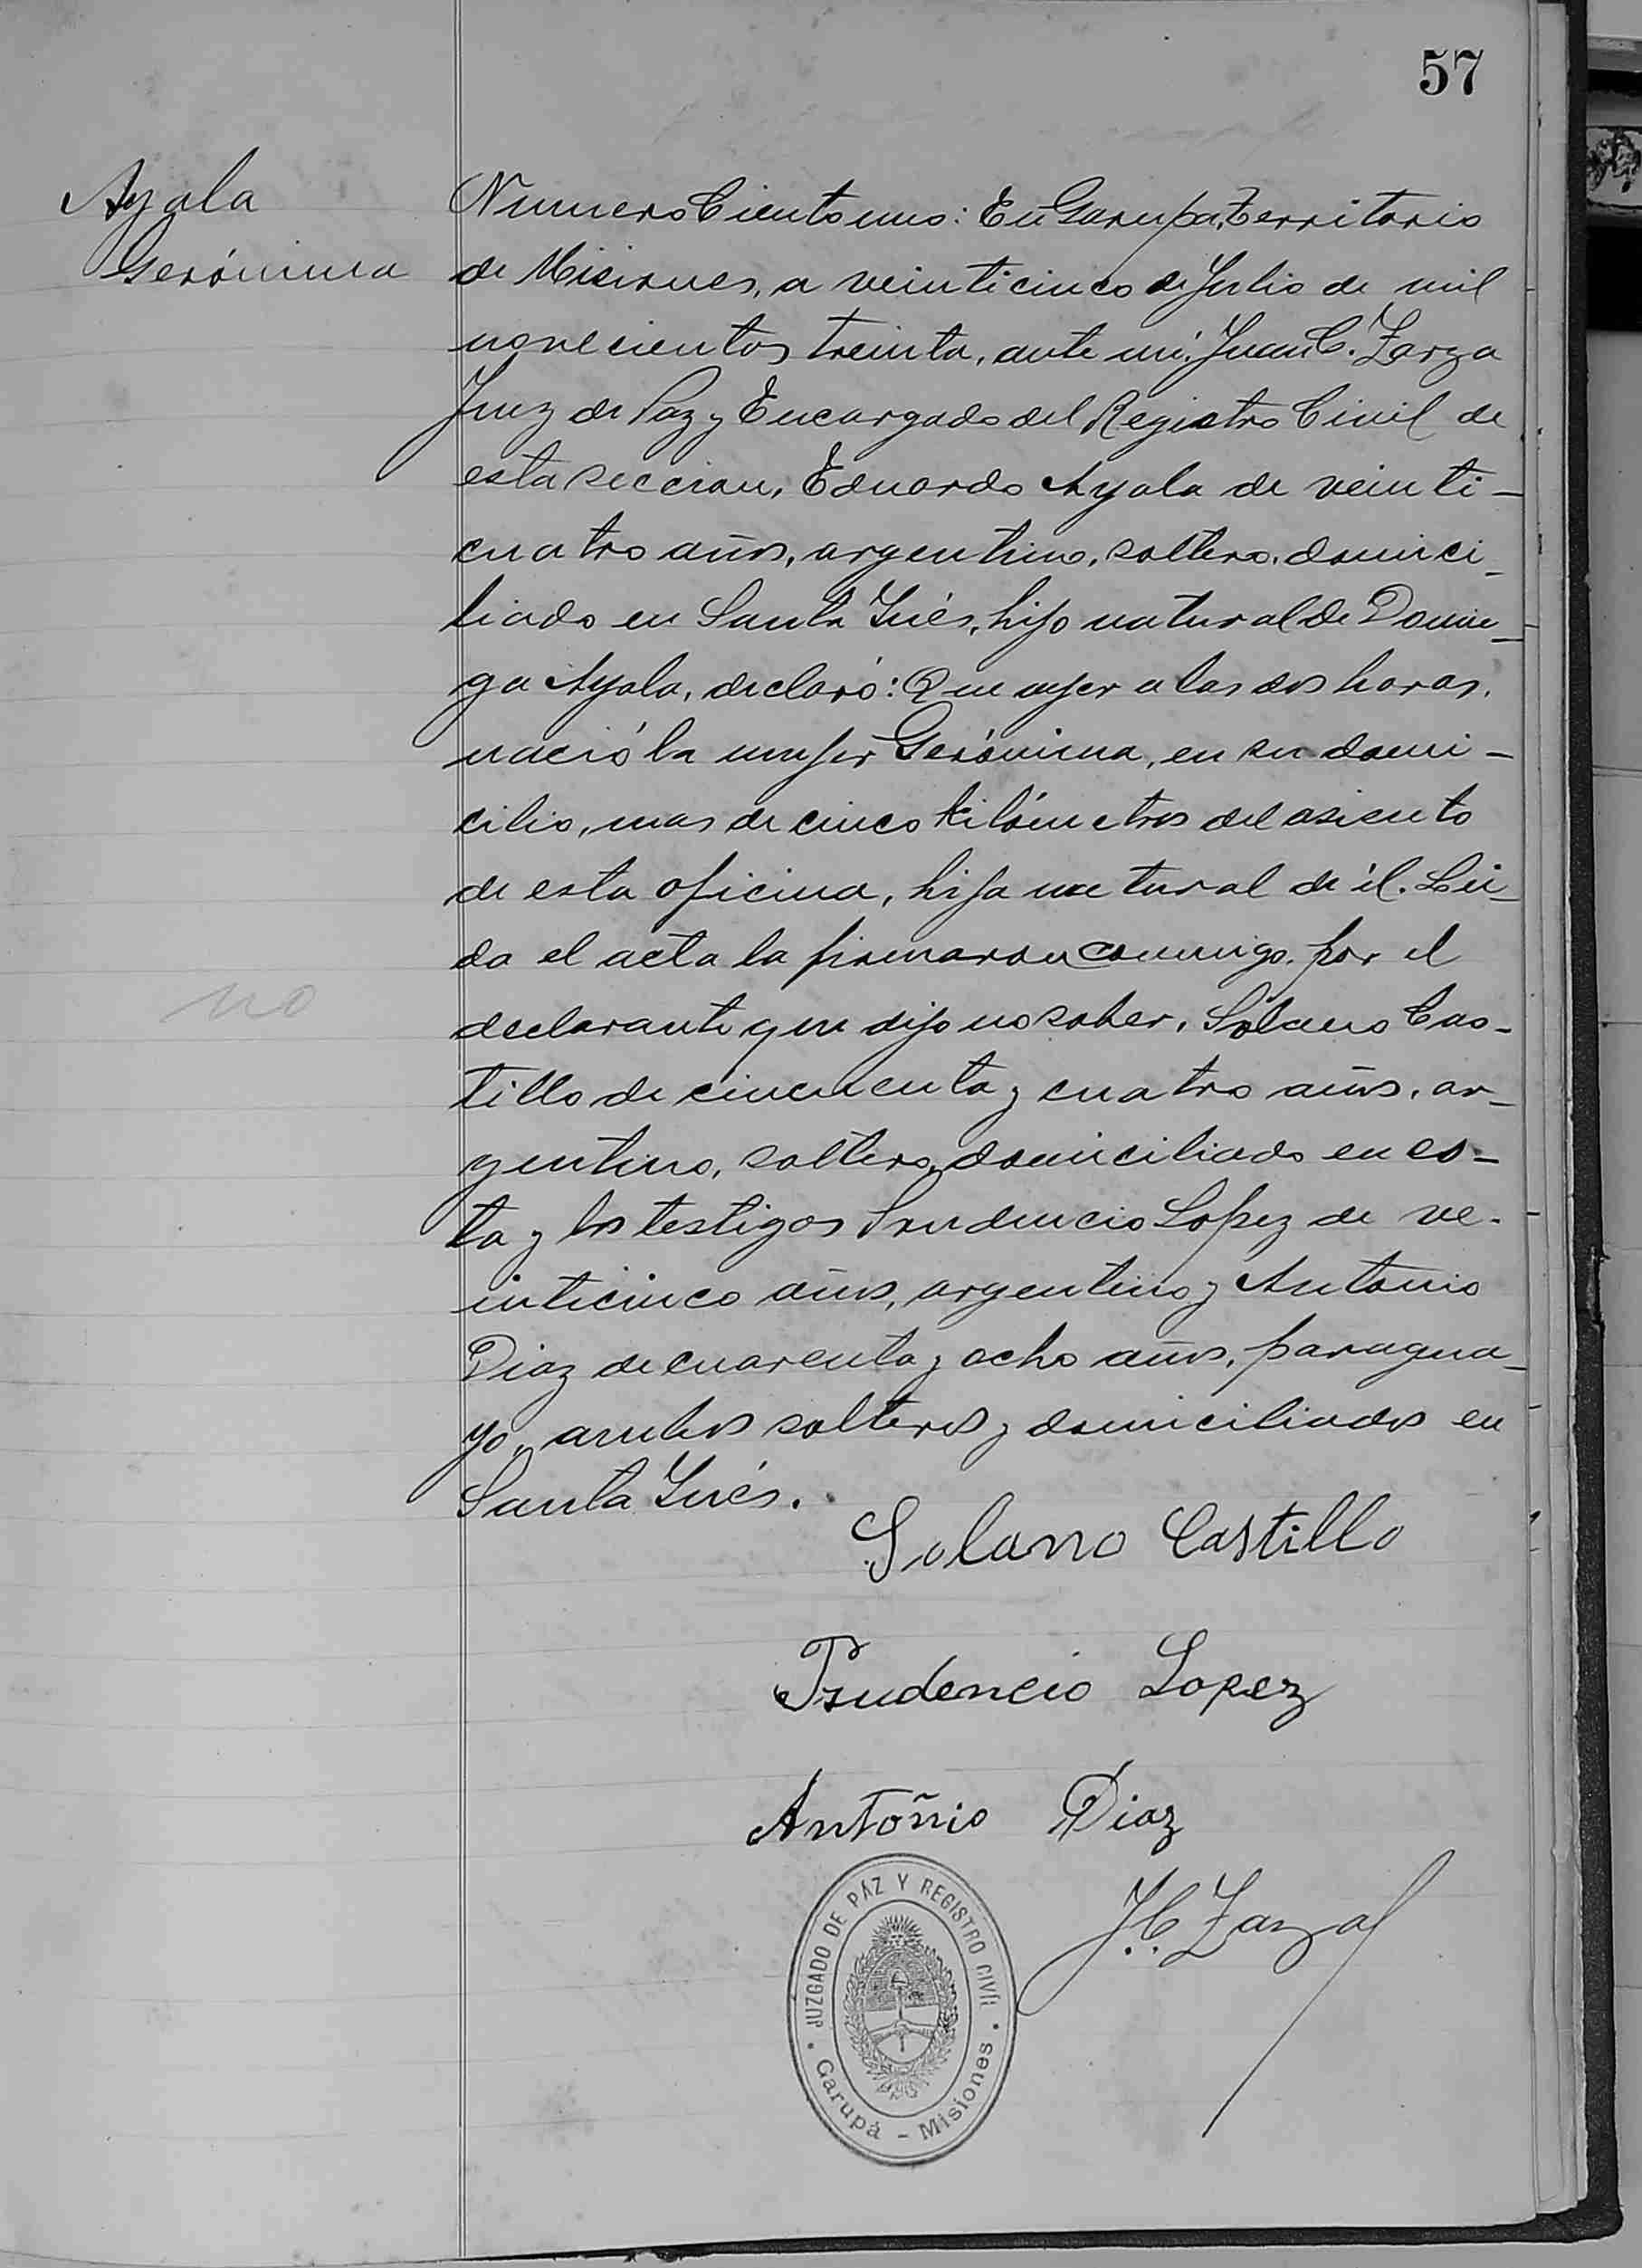 57
Ayala
Gerónima
Numero Ciento uno: En Garupa, Territorio
de Misiones, a veinticinco de Julio de mil
novecientos treinta, ante mi, Juan C. Zarza
Juez de Paz y Encargado del Registro Civil de
esta seccion, Eduardo Ayala de veinti-
cuatro años, argentino, soltero, domici-
liado en Santa Inés, hijo natural de Domin-
ga Ayala, declaró: Que ayer a las dos horas,
nació la mujer Gerónima, en su domi-
cilio, mas de cinco kilómetros del asiento
de esta oficina, hija natural de él. Lei-
da el acta la firmaron conmigo, por el
declarante que dijo no saber, Solano Cas-
tillo de cincuenta y cuatro años, ar-
gentino, soltero, domiciliado en es-
ta y los testigos Prudencio Lopez de ve-
inticinco años, argentino y Antonio
Diaz de cuarenta y ocho años, paragua-
yo, ambos solteros y domiciliados en
Santa Inés.
no
Solano Castillo
Prudencio Lopez
Antoñio Diaz
J. C. Zarza
JUZGADO DE PÁZ Y REGISTRO CIVIL
Garupá - Misiones